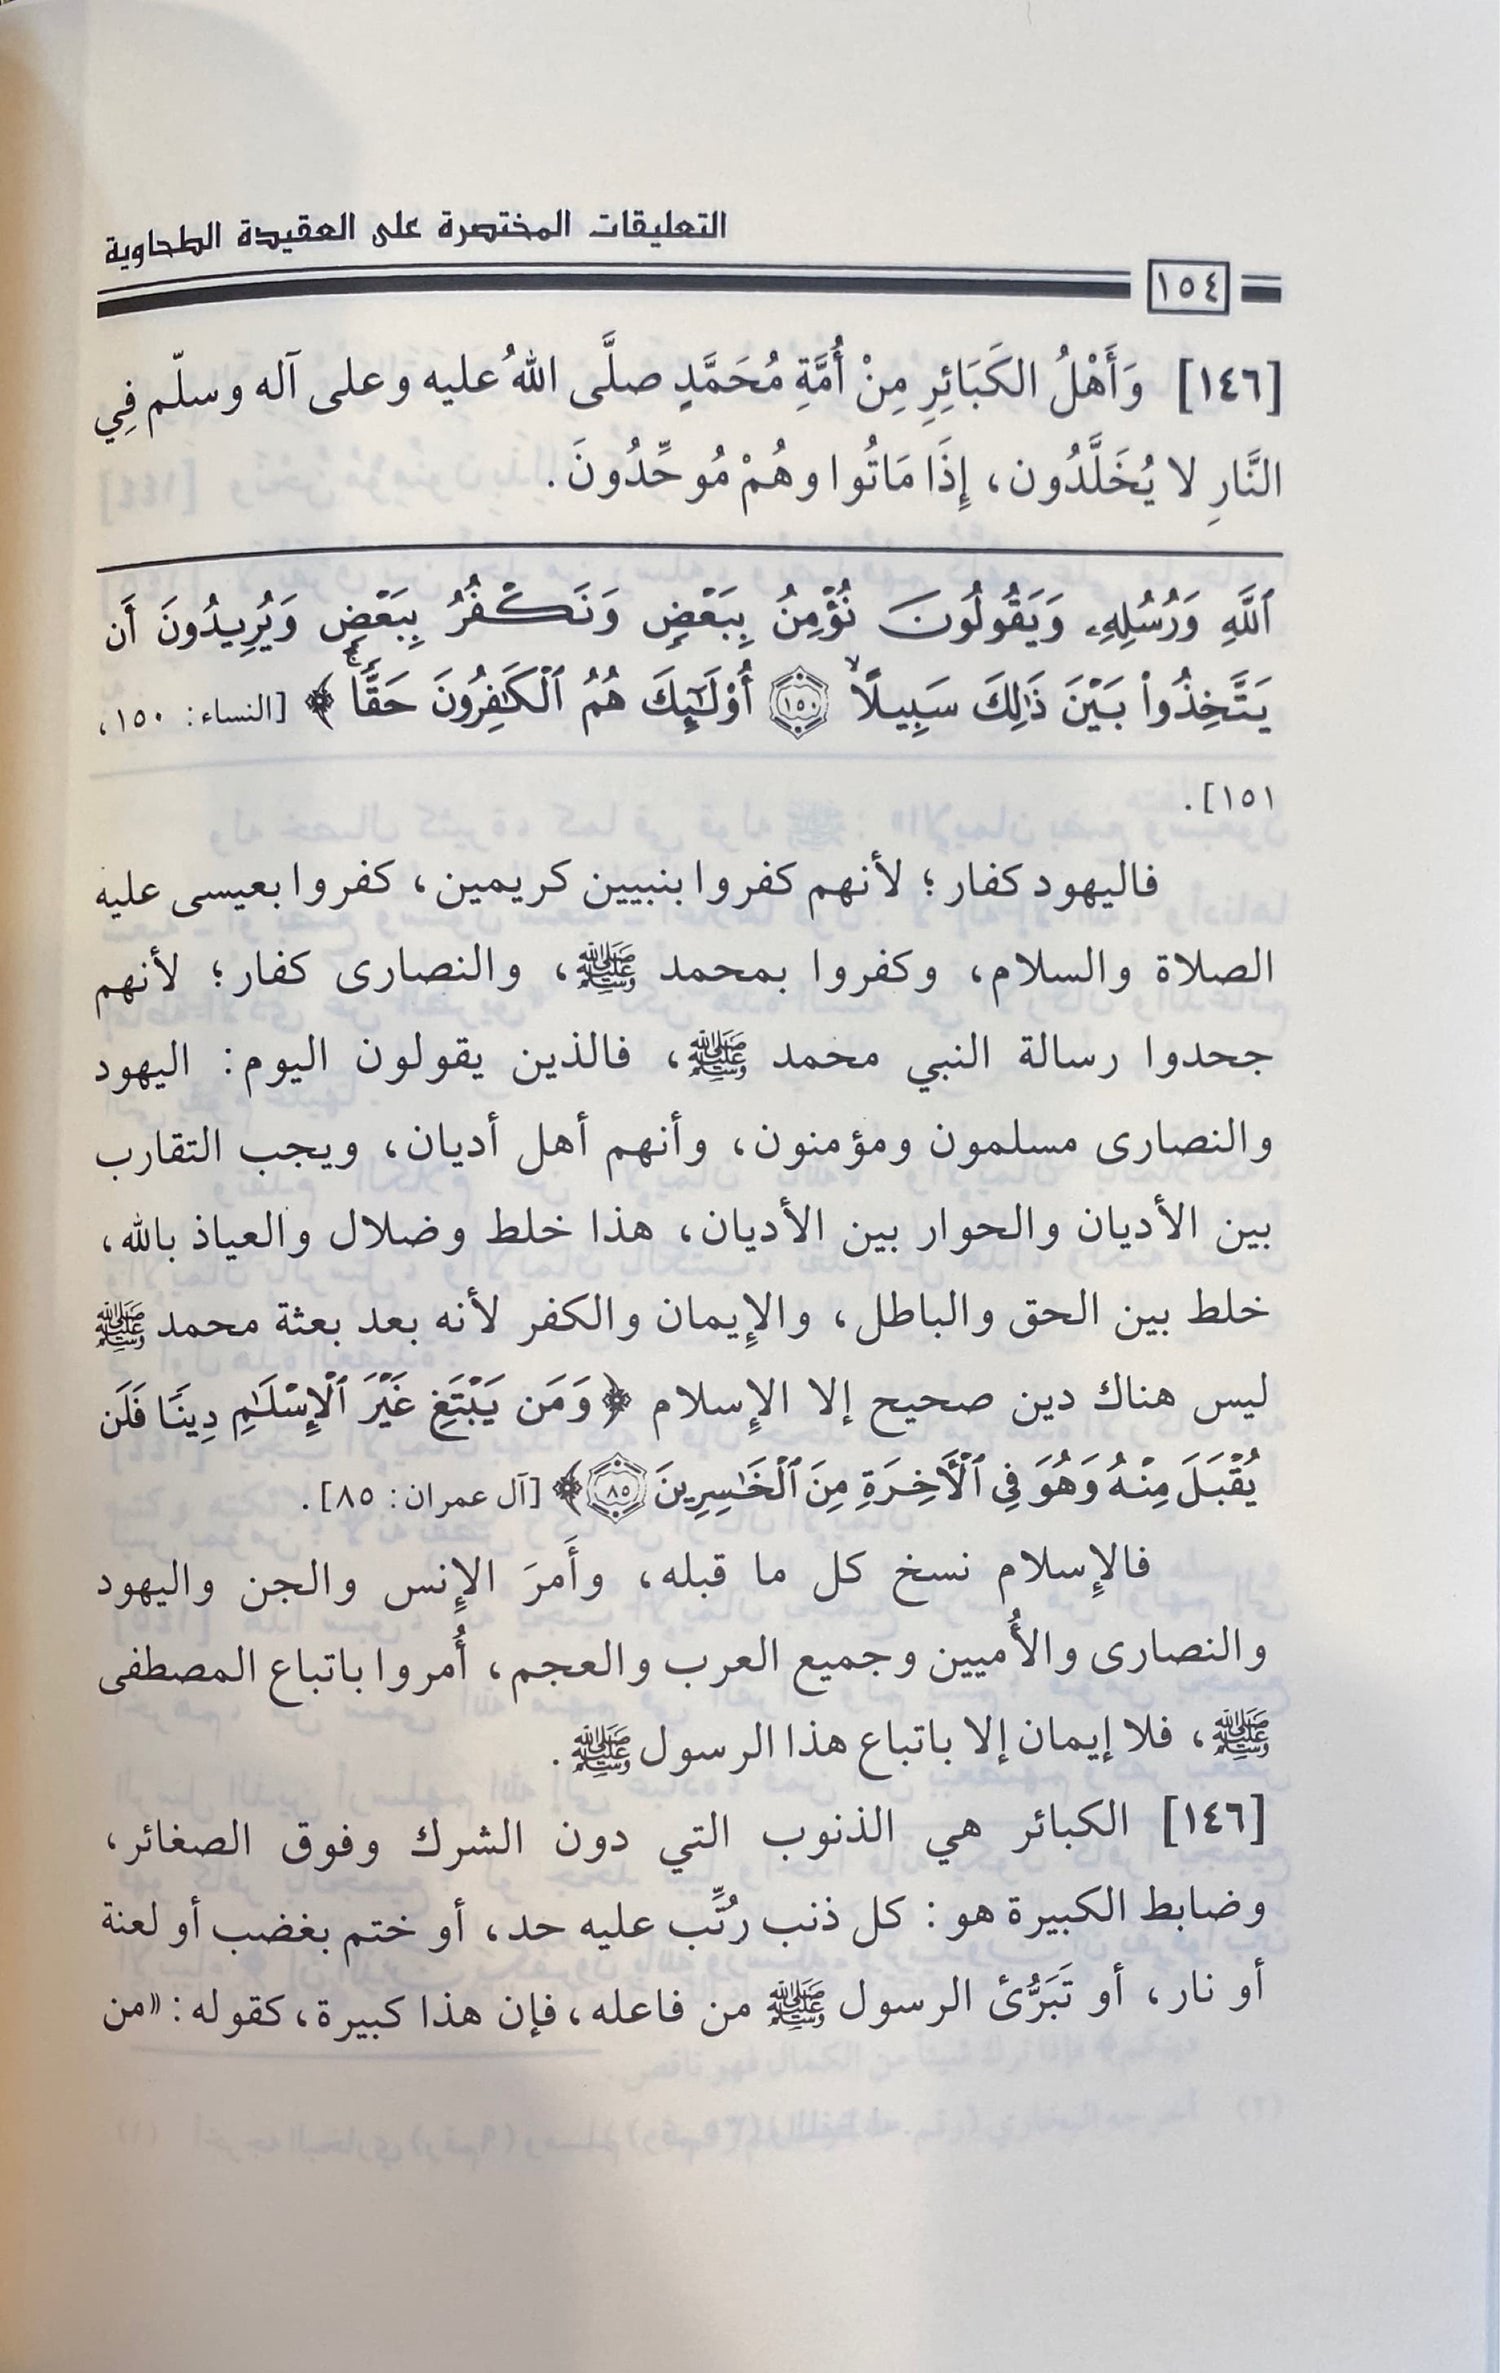 التعليقات المختصرة على العقيدة الطحاوية
١٥٤
[١٤٦] وَأَهْلُ الكَبَائِرِ مِنْ أُمَّةِ مُحَمَّدٍ صلَّى اللهُ عليه وعلى آله وسلّم فِي
النَّارِ لا يُخَلَّدُون، إِذَا مَاتُوا وهُمْ مُوحِّدُونَ.
ٱللَّهِ وَرُسُلِهِۦ وَيَقُولُونَ نُؤْمِنُ بِبَعْضٍ وَنَكْفُرُ بِبَعْضٍ وَيُرِيدُونَ أَن
يَتَّخِذُوا۟ بَيْنَ ذَٰلِكَ سَبِيلًا ۙ ١٥٠ أُو۟لَٰٓئِكَ هُمُ ٱلْكَٰفِرُونَ حَقًّا ۚ﴾ [النساء: ١٥٠،
١٥١].
فاليهود كفار؛ لأنهم كفروا بنبيين كريمين، كفروا بعيسى عليه
الصلاة والسلام، وكفروا بمحمد ﷺ، والنصارى كفار؛ لأنهم
جحدوا رسالة النبي محمد ﷺ، فالذين يقولون اليوم: اليهود
والنصارى مسلمون ومؤمنون، وأنهم أهل أديان، ويجب التقارب
بين الأديان والحوار بين الأديان، هذا خلط وضلال والعياذ بالله،
خلط بين الحق والباطل، والإيمان والكفر لأنه بعد بعثة محمد ﷺ
ليس هناك دين صحيح إلا الإسلام ﴿وَمَن يَبْتَغِ غَيْرَ ٱلْإِسْلَٰمِ دِينًا فَلَن
يُقْبَلَ مِنْهُ وَهُوَ فِى ٱلْـَٔاخِرَةِ مِنَ ٱلْخَٰسِرِينَ ٨٥﴾ [آل عمران: ٨٥].
فالإسلام نسخ كل ما قبله، وأَمرَ الإنس والجن واليهود
والنصارى والأُميين وجميع العرب والعجم، أُمروا باتباع المصطفى
ﷺ، فلا إيمان إلا باتباع هذا الرسول ﷺ.
[١٤٦] الكبائر هي الذنوب التي دون الشرك وفوق الصغائر،
وضابط الكبيرة هو: كل ذنب رُتِّب عليه حد، أو ختم بغضب أو لعنة
أو نار، أو تَبَرُّئ الرسول ﷺ من فاعله، فإن هذا كبيرة، كقوله: «من